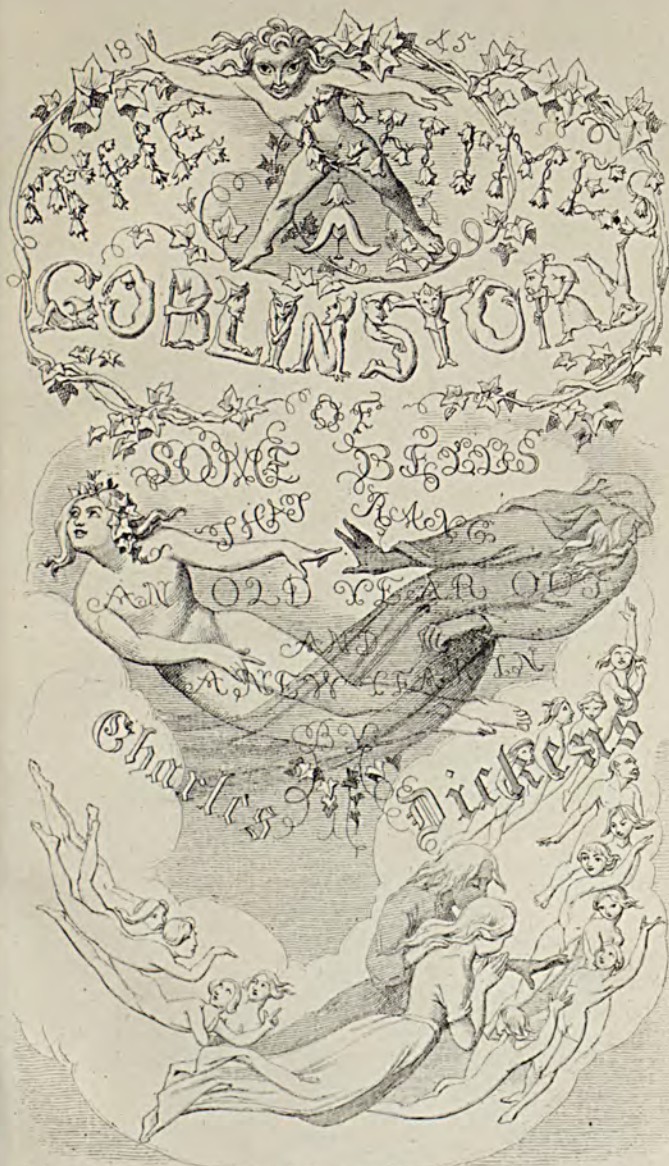 1845
THE CHIMES
A
GOBLIN STORY
OF
SOME BELLS
THAT RANG
AN OLD YEAR OUT
AND
A NEW YEAR IN
BY
Charles Dickens